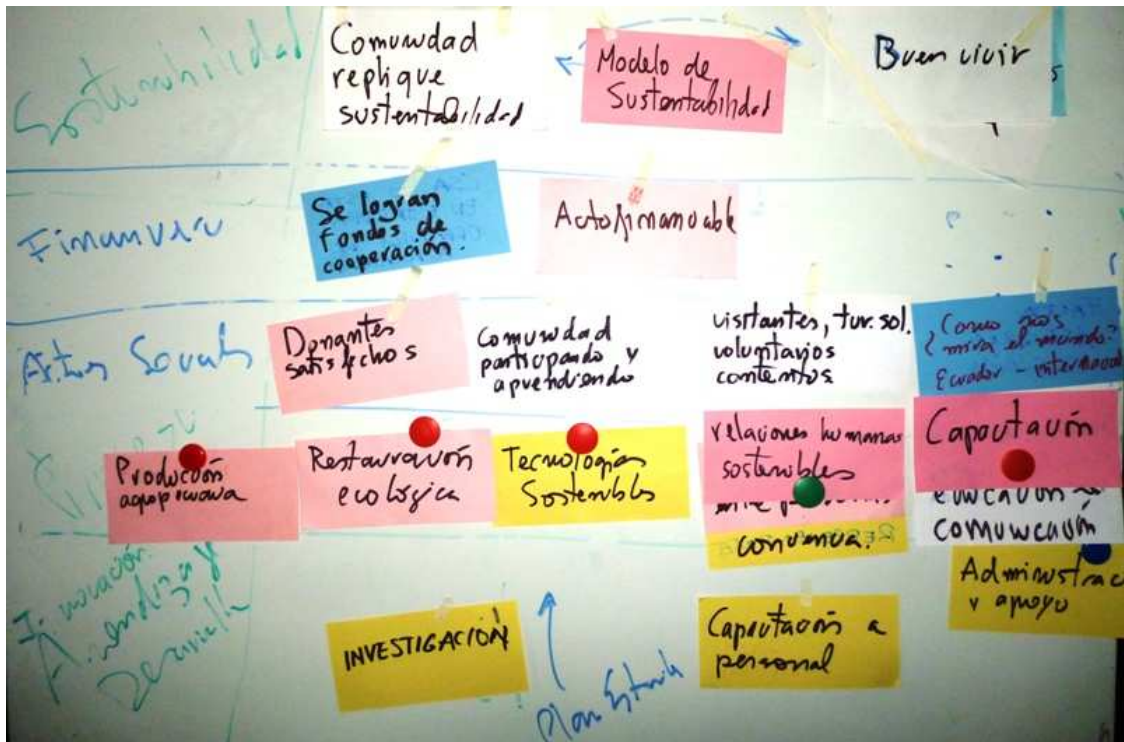 Sostenibilidad
Comunidad
replique
sustentabilidad
Modelo de
Sustentabilidad
Buen vivir
Financiera
Se logran
fondos de
cooperación.
Autofinanciable
Actores Sociales
Donantes
satisfechos
Comunidad
participando y
aprendiendo
visitantes, tur. sol.
voluntarios
contentos
¿Como nos
mira el mundo?
Ecuador - internacional
Producción
agropecuaria
Restauración
ecologica
Tecnologías
Sostenibles
relaciones humanas
sostenibles
convivencia.
Capacitación
comunicación
Administrac
y apoyo
Innovación
Aprendizaje y
Desarrollo
INVESTIGACIÓN
Capacitación a
personal
Plan